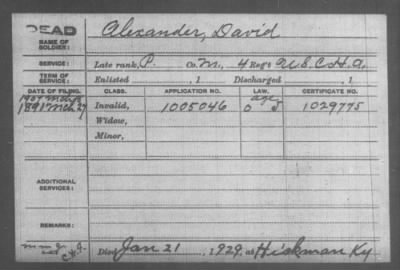 DEAD
NAME OF SOLDIER: Alexander, David
SERVICE: Late rank, P. Co. M., 4 Reg't U.S.C.H.A.
TERM OF SERVICE: Enlisted , 1 Discharged , 1
DATE OF FILING. CLASS. APPLICATION NO. LAW. CERTIFICATE NO.
1907 Mch
age
1891 Mch 27 Invalid, 1005046 1029775
Widow,
Minor,
ADDITIONAL SERVICES:
REMARKS:
Died Jan 21, 1929, at Hickman Ky